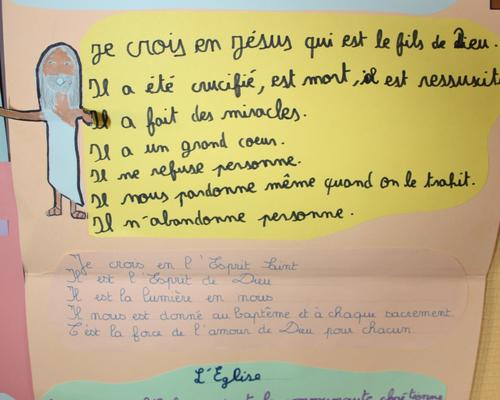 Je crois en Jésus qui est le fils de Dieu.
Il a été crucifié, est mort, il est ressuscit
Il a fait des miracles.
Il a un grand coeur.
Il ne refuse personne.
Il nous pardonne même quand on le trahit.
Il n'abandonne personne.
Je crois en l'Esprit Saint
Il est l'Esprit de Dieu
Il est la lumière en nous
Il nous est donné au baptême et à chaque sacrement.
C'est la force de l'amour de Dieu pour chacun
L'Église
est la communauté chrétienne